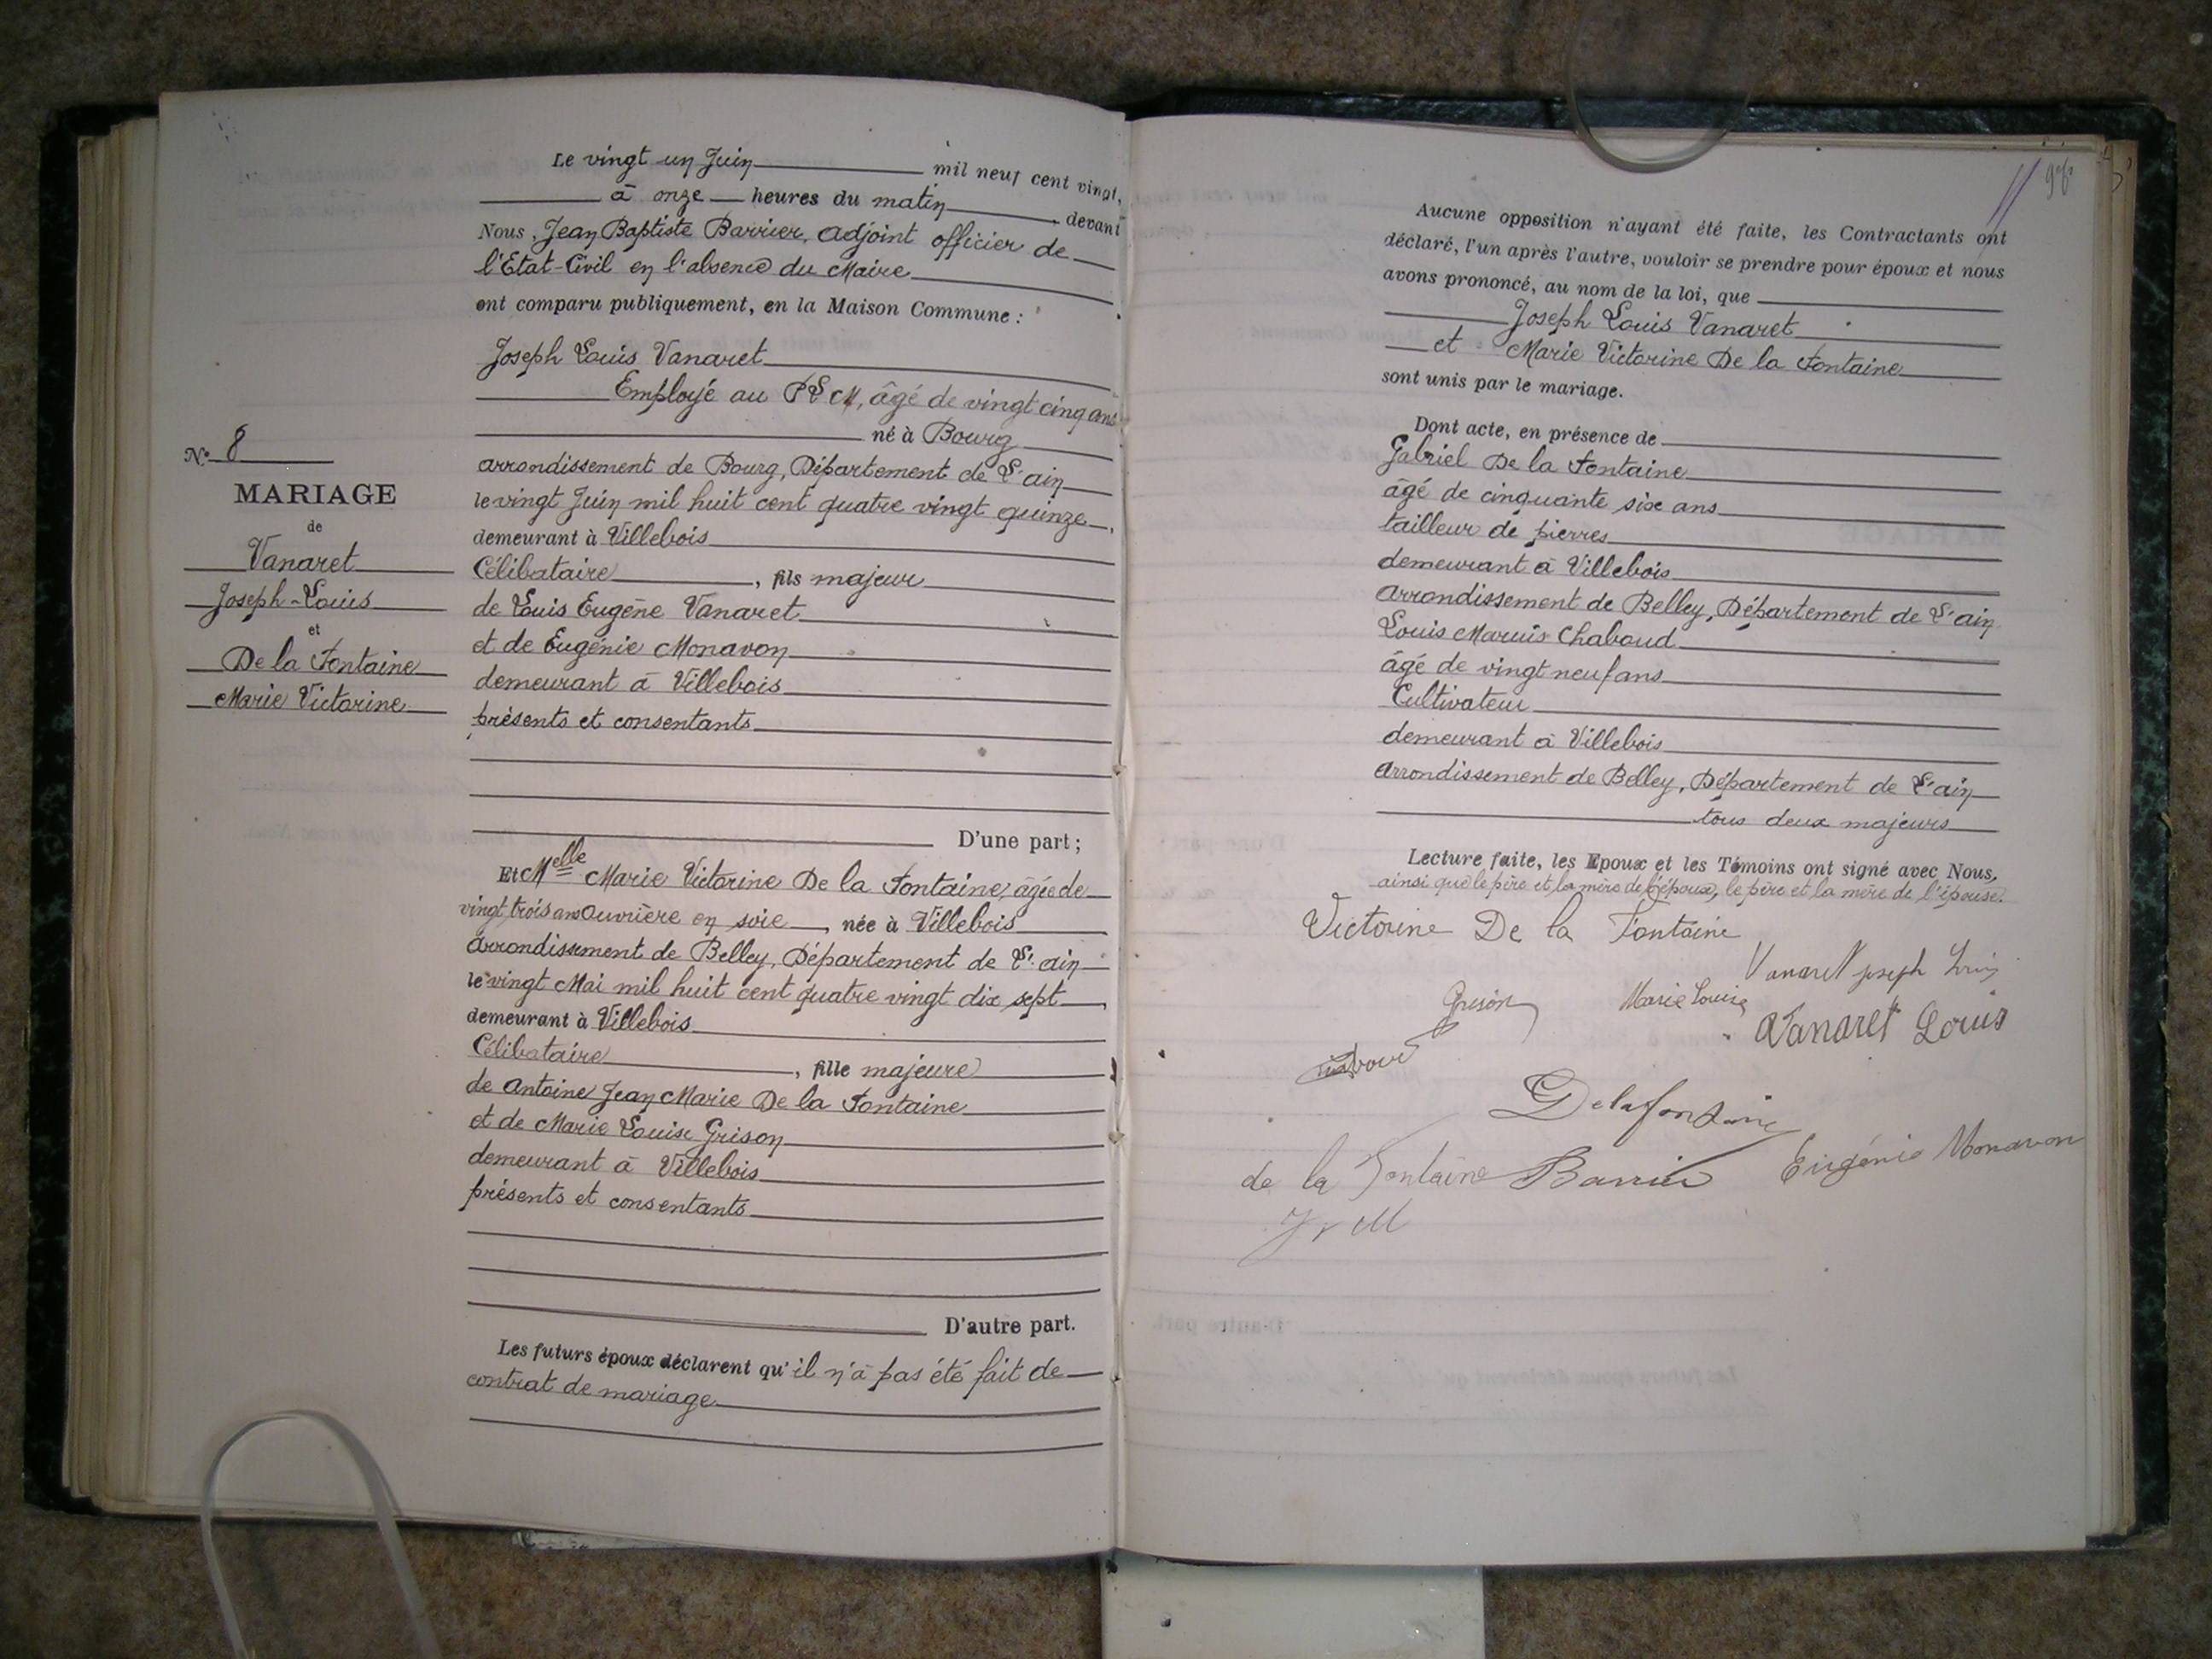 Le vingt un Juin mil neuf cent vingt,
à onze heures du matin devant
Nous, Jean Baptiste Barrier, adjoint officier de
l'Etat-Civil en l'absence du Maire
ont comparu publiquement, en la Maison Commune :
Joseph Louis Vanaret
Employé au PLM, âgé de vingt cinq ans
né à Bourg
arrondissement de Bourg, Département de L'ain
le vingt Juin mil huit cent quatre vingt quinze,
demeurant à Villebois
Célibataire, fils majeur
de Louis Eugène Vanaret
et de Eugénie Monavon
demeurant à Villebois
présents et consentants
D'une part ;
N° 8
MARIAGE
de
Vanaret
Joseph-Louis
et
De la Fontaine
Marie Victorine
Et Melle Marie Victorine De la Fontaine, âgée de
vingt trois ans Ouvrière en soie, née à Villebois
Arrondissement de Belley, Département de L'ain
le vingt Mai mil huit cent quatre vingt dix sept,
demeurant à Villebois
Célibataire, fille majeure
de Antoine Jean Marie De la Fontaine
et de Marie Louise Grison
demeurant à Villebois
présents et consentants
D'autre part.
Les futurs époux déclarent qu'il n'a pas été fait de
contrat de mariage
Aucune opposition n'ayant été faite, les Contractants ont
déclaré, l'un après l'autre, vouloir se prendre pour époux et nous
avons prononcé, au nom de la loi, que
Joseph Louis Vanaret
et Marie Victorine De la Fontaine
sont unis par le mariage.
Dont acte, en présence de
Gabriel De la Fontaine
âgé de cinquante six ans
tailleur de pierres
demeurant à Villebois
Arrondissement de Belley, Département de L'ain
Louis Chaboud
âgé de vingt neuf ans
Cultivateur
demeurant à Villebois
Arrondissement de Belley, Département de L'ain
tous deux majeurs
Lecture faite, les Epoux et les Témoins ont signé avec Nous.
ainsi que le père et la mère de l'époux, le père et la mère de l'épouse.
Victorine De la Fontaine
Vanaret Joseph Louis
Grison Marie Louise
Vanaret Louis
Delafontaine
de la Fontaine Barrier Eugénie Monavon